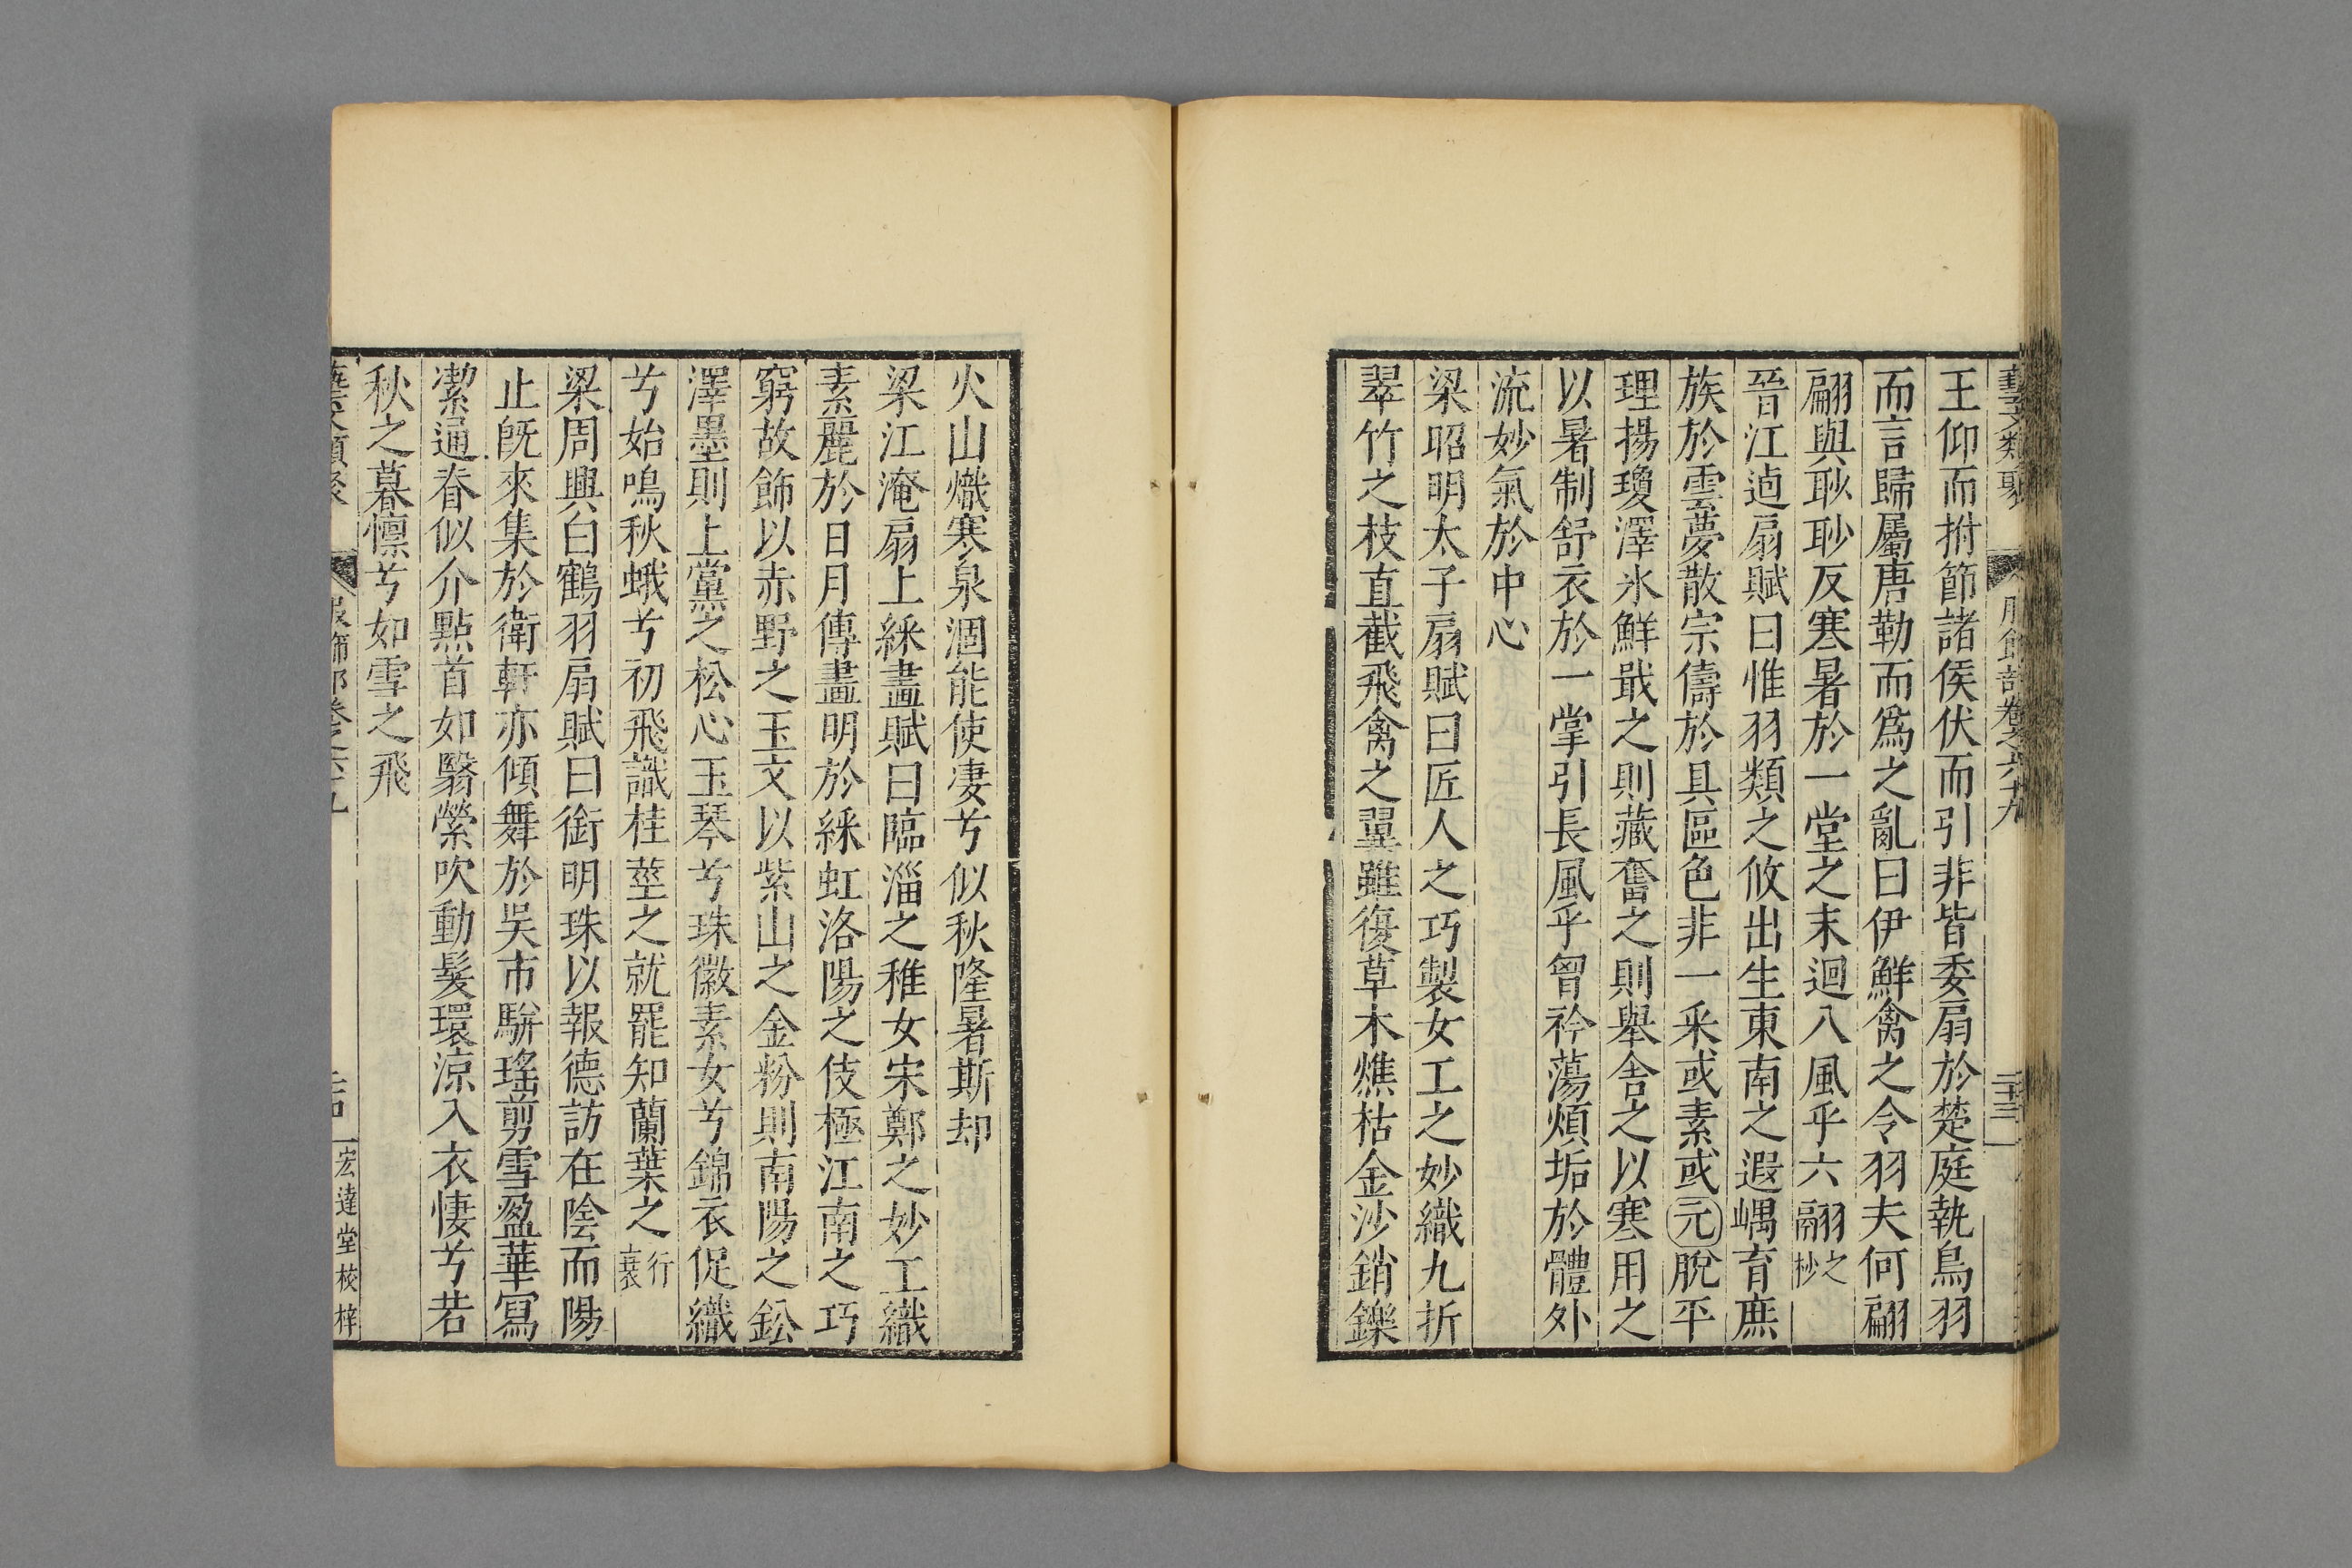 藝文類聚 服飾部卷之六十九 二十三
王仰而拊節諸侯伏而引非皆委扇於楚庭執鳥羽
而言歸屬唐勒而爲之亂曰伊鮮禽之令羽夫何翩
翩與耿耿反寒暑於一堂之末迴八風乎六翮之抄
晉江逌扇賦曰惟羽類之攸出生東南之遐嵎育庶
族於雲夢散宗儔於具區色非一采或素或元脫平
理揚瓊澤氷鮮戢之則藏奮之則舉舍之以寒用之
以暑制舒衣於一掌引長風乎胷衿蕩煩垢於體外
流妙氣於中心
梁昭明太子扇賦曰匠人之巧製女工之妙織九折
翠竹之枝直截飛禽之翼雖復草木燋枯金沙銷鑠
火山熾寒泉涸能使凄兮似秋隆暑斯却
梁江淹扇上綵畫賦曰臨淄之稚女宋鄭之妙工織
素麗於日月傳畫明於綵虹洛陽之伎極江南之巧
窮故飾以赤野之玉文以紫山之金粉則南陽之鈆
澤墨則上黨之松心玉琴兮珠徽素女兮錦衣促織
兮始鳴秋蛾兮初飛識桂莖之就罷知蘭葉之行衰
梁周興白鶴羽扇賦曰銜明珠以報德訪在陰而陽
止旣來集於衛軒亦傾舞於吳市騈瑤剪雪盈華寫
潔通春似介點首如翳縈吹動髮環涼入衣悽兮若
秋之暮懍兮如雪之飛
藝文類聚 服飾部卷之六十九 二十四 宏達堂校梓